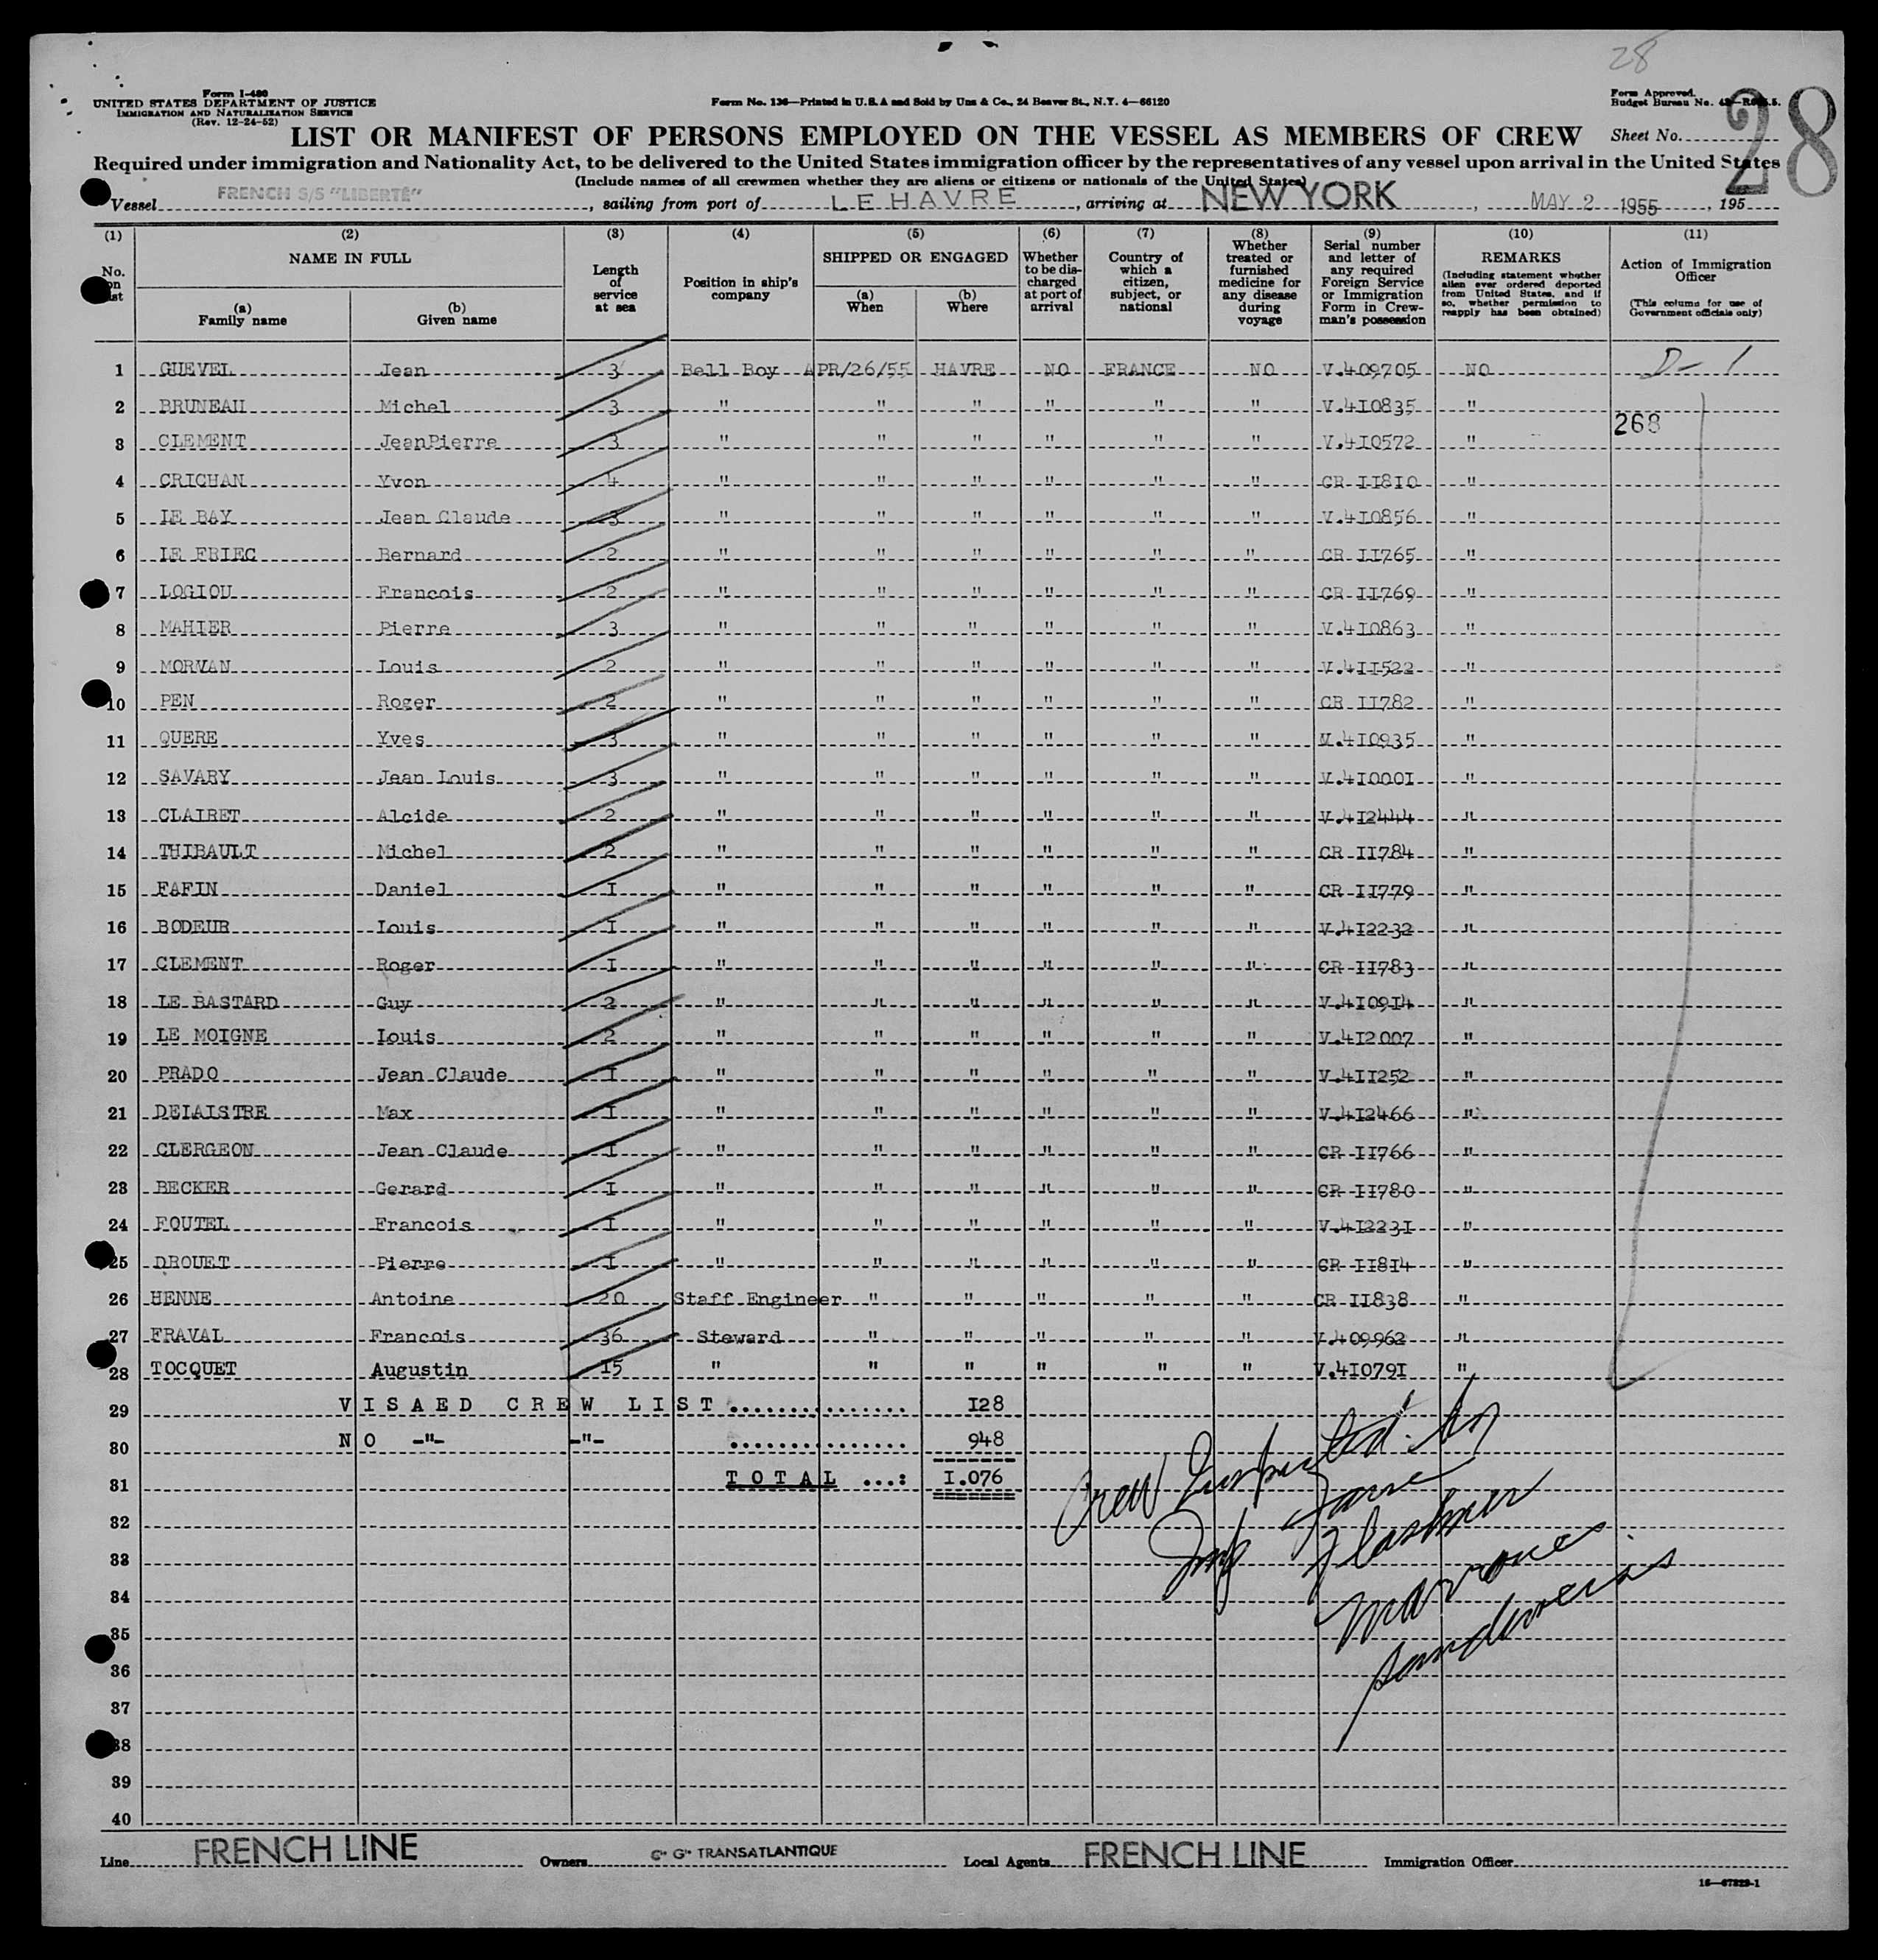 28
Form I-480
UNITED STATES DEPARTMENT OF JUSTICE
IMMIGRATION AND NATURALIZATION SERVICE
(Rev. 12-24-52)
Form No. 136—Printed in U.S.A and Sold by Unz & Co., 24 Beaver St., N.Y. 4—66120
Form Approved.
Budget Bureau No.
LIST OR MANIFEST OF PERSONS EMPLOYED ON THE VESSEL AS MEMBERS OF CREW
Sheet No. 28
Required under immigration and Nationality Act, to be delivered to the United States immigration officer by the representatives of any vessel upon arrival in the United States
(Include names of all crewmen whether they are aliens or citizens or nationals of the United States)
Vessel FRENCH S/S "LIBERTÉ", sailing from port of LE HAVRE, arriving at NEW YORK, MAY 2 1955, 195
(1) (2) (3) (4) (5) (6) (7) (8) (9) (10) (11)
No. on list
NAME IN FULL
(a) Family name
(b) Given name
Length of service at sea
Position in ship's company
SHIPPED OR ENGAGED
(a) When
(b) Where
Whether to be discharged at port of arrival
Country of which a citizen, subject, or national
Whether treated or furnished medicine for any disease during voyage
Serial number and letter of any required Foreign Service or Immigration Form in Crewman's possession
REMARKS
(Including statement whether alien ever ordered deported from United States, and if so, whether permission to reapply has been obtained)
Action of Immigration Officer
(This column for use of Government officials only)
1 GUEVEL Jean 3 Bell Boy APR/26/55 HAVRE NO FRANCE NO V.409705 NO D-1
2 BRUNEAU Michel 3 " " " " " " V.4I0835 "
268
3 CLEMENT JeanPierre 3 " " " " " " V.4I0572 "
4 CRICHAN Yvon 4 " " " " " " CR II8I0 "
5 LE BAY Jean Claude 3 " " " " " " V.4I0856 "
6 LE FRIEC Bernard 2 " " " " " " CR II765 "
7 LOGIOU Francois 2 " " " " " " CR II769 "
8 MAHIER Pierre 3 " " " " " " V.4I0863 "
9 MORVAN Louis 2 " " " " " " V.4II522 "
10 PEN Roger 2 " " " " " " CR II782 "
11 QUERE Yves 3 " " " " " " V.4I0935 "
12 SAVARY Jean Louis 3 " " " " " " V.4I000I "
13 CLAIRET Alcide 2 " " " " " " V.4I2444 "
14 THIBAULT Michel 2 " " " " " " CR II784 "
15 FAFIN Daniel I " " " " " " CR II779 "
16 BODEUR Louis I " " " " " " V.4I2232 "
17 CLEMENT Roger I " " " " " " CR II783 "
18 LE BASTARD Guy 2 " " " " " " V.4I09I4 "
19 LE MOIGNE Louis 2 " " " " " " V.4I2007 "
20 PRADO Jean Claude I " " " " " " V.4II252 "
21 DELAISTRE Max I " " " " " " V.4I2466 "
22 CLERGEON Jean Claude I " " " " " " CR II766 "
23 BECKER Gerard I " " " " " " CR II780 "
24 FOUTEL Francois I " " " " " " V.4I223I "
25 DROUET Pierre I " " " " " " CR II8I4 "
26 HENNE Antoine 20 Staff Engineer " " " " " CR II838 "
27 FRAVAL Francois 36 Steward " " " " " V.409962 "
28 TOCQUET Augustin I5 " " " " " " V.4I079I "
29 VISAED CREW LIST ............... I28
30 NO -"- -"- ............... 948
31 TOTAL ...: I.076
32
33
34
35
36
37
38
39
40
Crew Inspected by
Marrone
Line FRENCH LINE Owners Cie Gle TRANSATLANTIQUE Local Agents FRENCH LINE Immigration Officer
16—67329-1